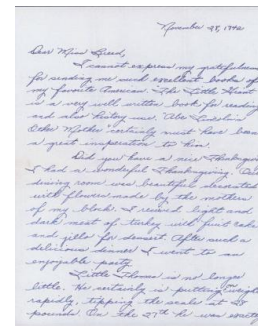 November 28, 1942
Dear Miss Breed,
I cannot express my gratefulness
for sending me such excellent books of
my favorite American. The Little Giant
is a very well written book for reading
and also history use. "Abe Lincoln's
Other Mother" certainly must have been
a great inspiration to him.
Did you have a nice Thanksgiving
I had a wonderful Thanksgiving. Our
dining room was beautiful decorated
with flowers made by the mothers
of my block. I received light and
dark meat of turkey with fruit cake
and jello for dessert. After such a
delicious dinner I went to an
enjoyable party.
Little is no longer
little. He certainly is putting weight
rapidly, tipping the scales at
pounds. On the 27th he was exactly